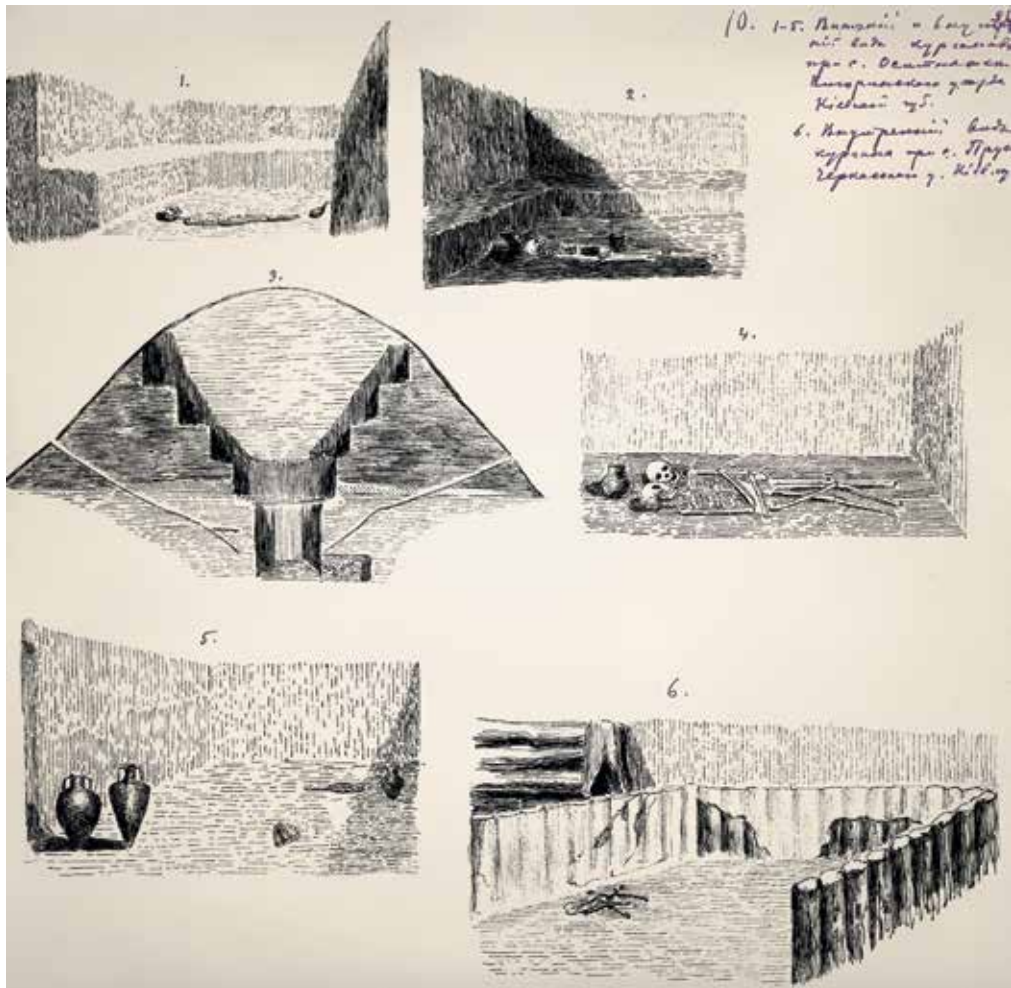 10. 1-5. Внешний и внутрен
ній видъ кургановъ
при с. Оситняжкѣ
Чигиринскаго уѣзда
Кіевской губ.
6. Внутренній видъ
кургана при с. Прусы
Черкасскаго у. Кіев. губ
1.
2.
3.
4.
5.
6.